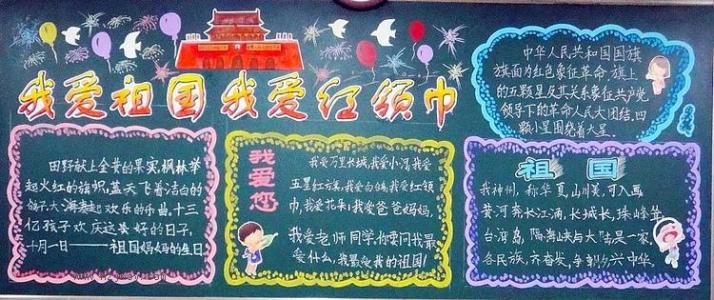 我爱祖国我爱红领巾
中华人民共和国国旗
旗面为红色象征革命.旗上
的五颗星及其关系象征共产党
领导下的革命人民大团结.四
颗小星围绕着大星.
田野献上金黄的果实,枫林举
起火红的旗帜,蓝天飞着洁白的
鸽子,大海奏起欢乐的乐曲,十三
亿孩子欢庆这美好的日子,
十月一日——祖国妈妈的生日
我爱您
我爱万里长城,我爱小河,我爱
五星红旗,我爱白鸽,我爱红领
巾,我爱花朵!我爱爸爸妈妈,
我爱老师同学,你要问我最
爱什么,我最爱我的祖国!
祖国
我神州,称华夏,山川美,可入画
黄河奔,长江涌,长城长,珠峰耸
台湾岛,隔海峡,与大陆,是一家,
各民族,齐奋发,争朝夕,兴中华.